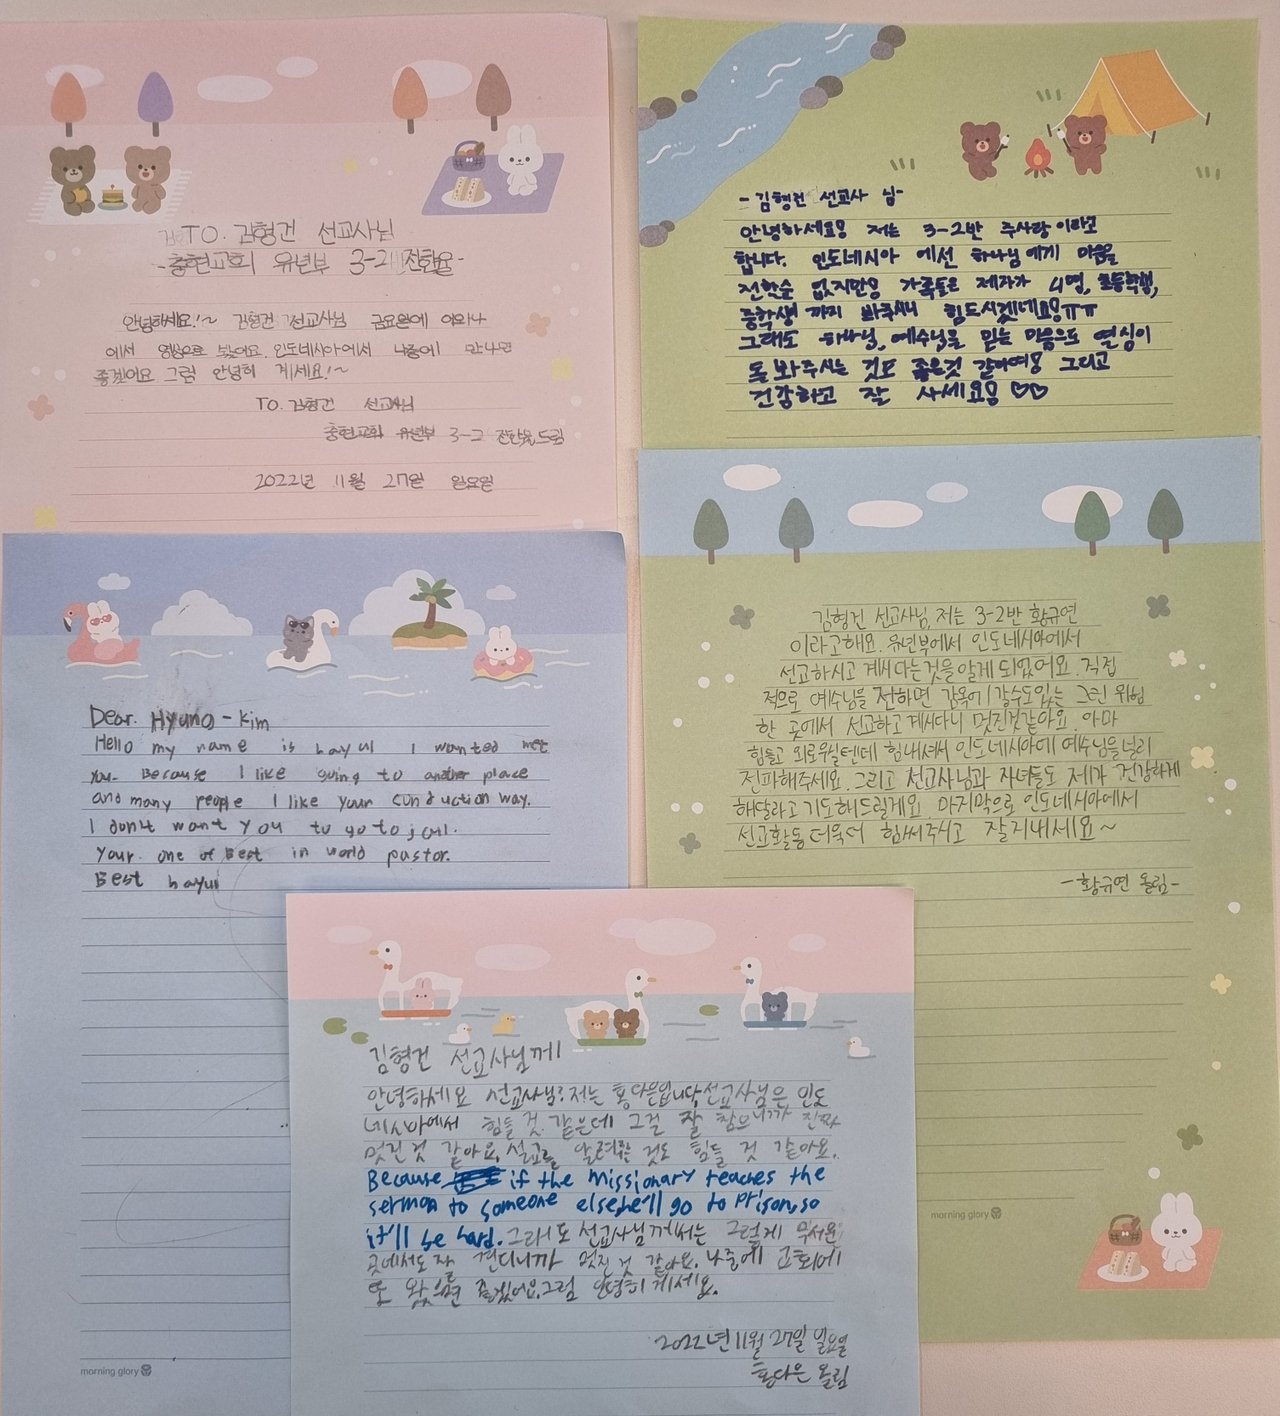 TO. 김형건 선교사님
-충현교회 유년부 3-2 전한율-
안녕하세요!~ 김형건 선교사님 금요일에
에서 영상으로 봤어요. 인도네시아에서 나중에 만나면
좋겠어요 그럼 안녕히 계세요!~
TO. 김형건 선교사님
충현교회 유년부 3-2 전한율드림
2022년 11월 27일 일요일
-김형건 선교사 님-
안녕하세요! 저는 3-2반 주사랑 이라고
합니다. 인도네시아 에선 하나님 에게 마음을
전할순 없지만! 가족들은 제자가 4명, 초등학생,
중학생 까지 봐주시니 힘드시겠네요!ㅠㅠ
그래도 하나님, 예수님을 믿는 마음으로 열심이
돌봐주시는 것도 좋은것 같아여! 그리고
건강하고 잘 사세요! ♡♡
Dear. Hyung-Kim
Hello my name is hayul I wanted met
you. Because I like going to another place
and many people I like your conduction way.
I don't want you to go to jail.
Your one of Best in world pastor.
Best hayul
morning glory
김형건 선교사님, 저는 3-2반 황규연
이라고해요. 유년부에서 인도네시아에서
선교하시고 계시다는것을 알게 되었어요. 직접
적으로 예수님을 전하면 감옥에 갈수도있는 그런 위험
한 곳에서 선교하고 계시다니 멋진것같아요. 아마
힘들고 외로우실텐데 힘내셔서 인도네시아에 예수님을 널리
전파해주세요. 그리고 선교사님과 자녀들도 제가 건강하게
해달라고 기도해드릴게요. 마지막으로 인도네시아에서
선교활동 더욱더 힘써주시고 잘지내세요~
-황규연 올림-
morning glory
김형건 선교사님께
안녕하세요 선교사님? 저는 홍다은입니다. 선교사님은 인도
네시아에서 힘들 것 같은데 그걸 잘 참으니까 진짜
멋진 것 같아요. 설교를 것도 힘들 것 같아요.
Because if the missionary teaches the
sermon to someone else, he'll go to prison, so
it'll be hard. 그래도 선교사님께서는 그렇게 무서운
곳에서도 잘 견디니까 멋진 것 같아요. 나중에 교회에
또 왔으면 좋겠어요. 그럼 안녕히 계세요.
2022년 11월 27일 일요일
홍다은 올림